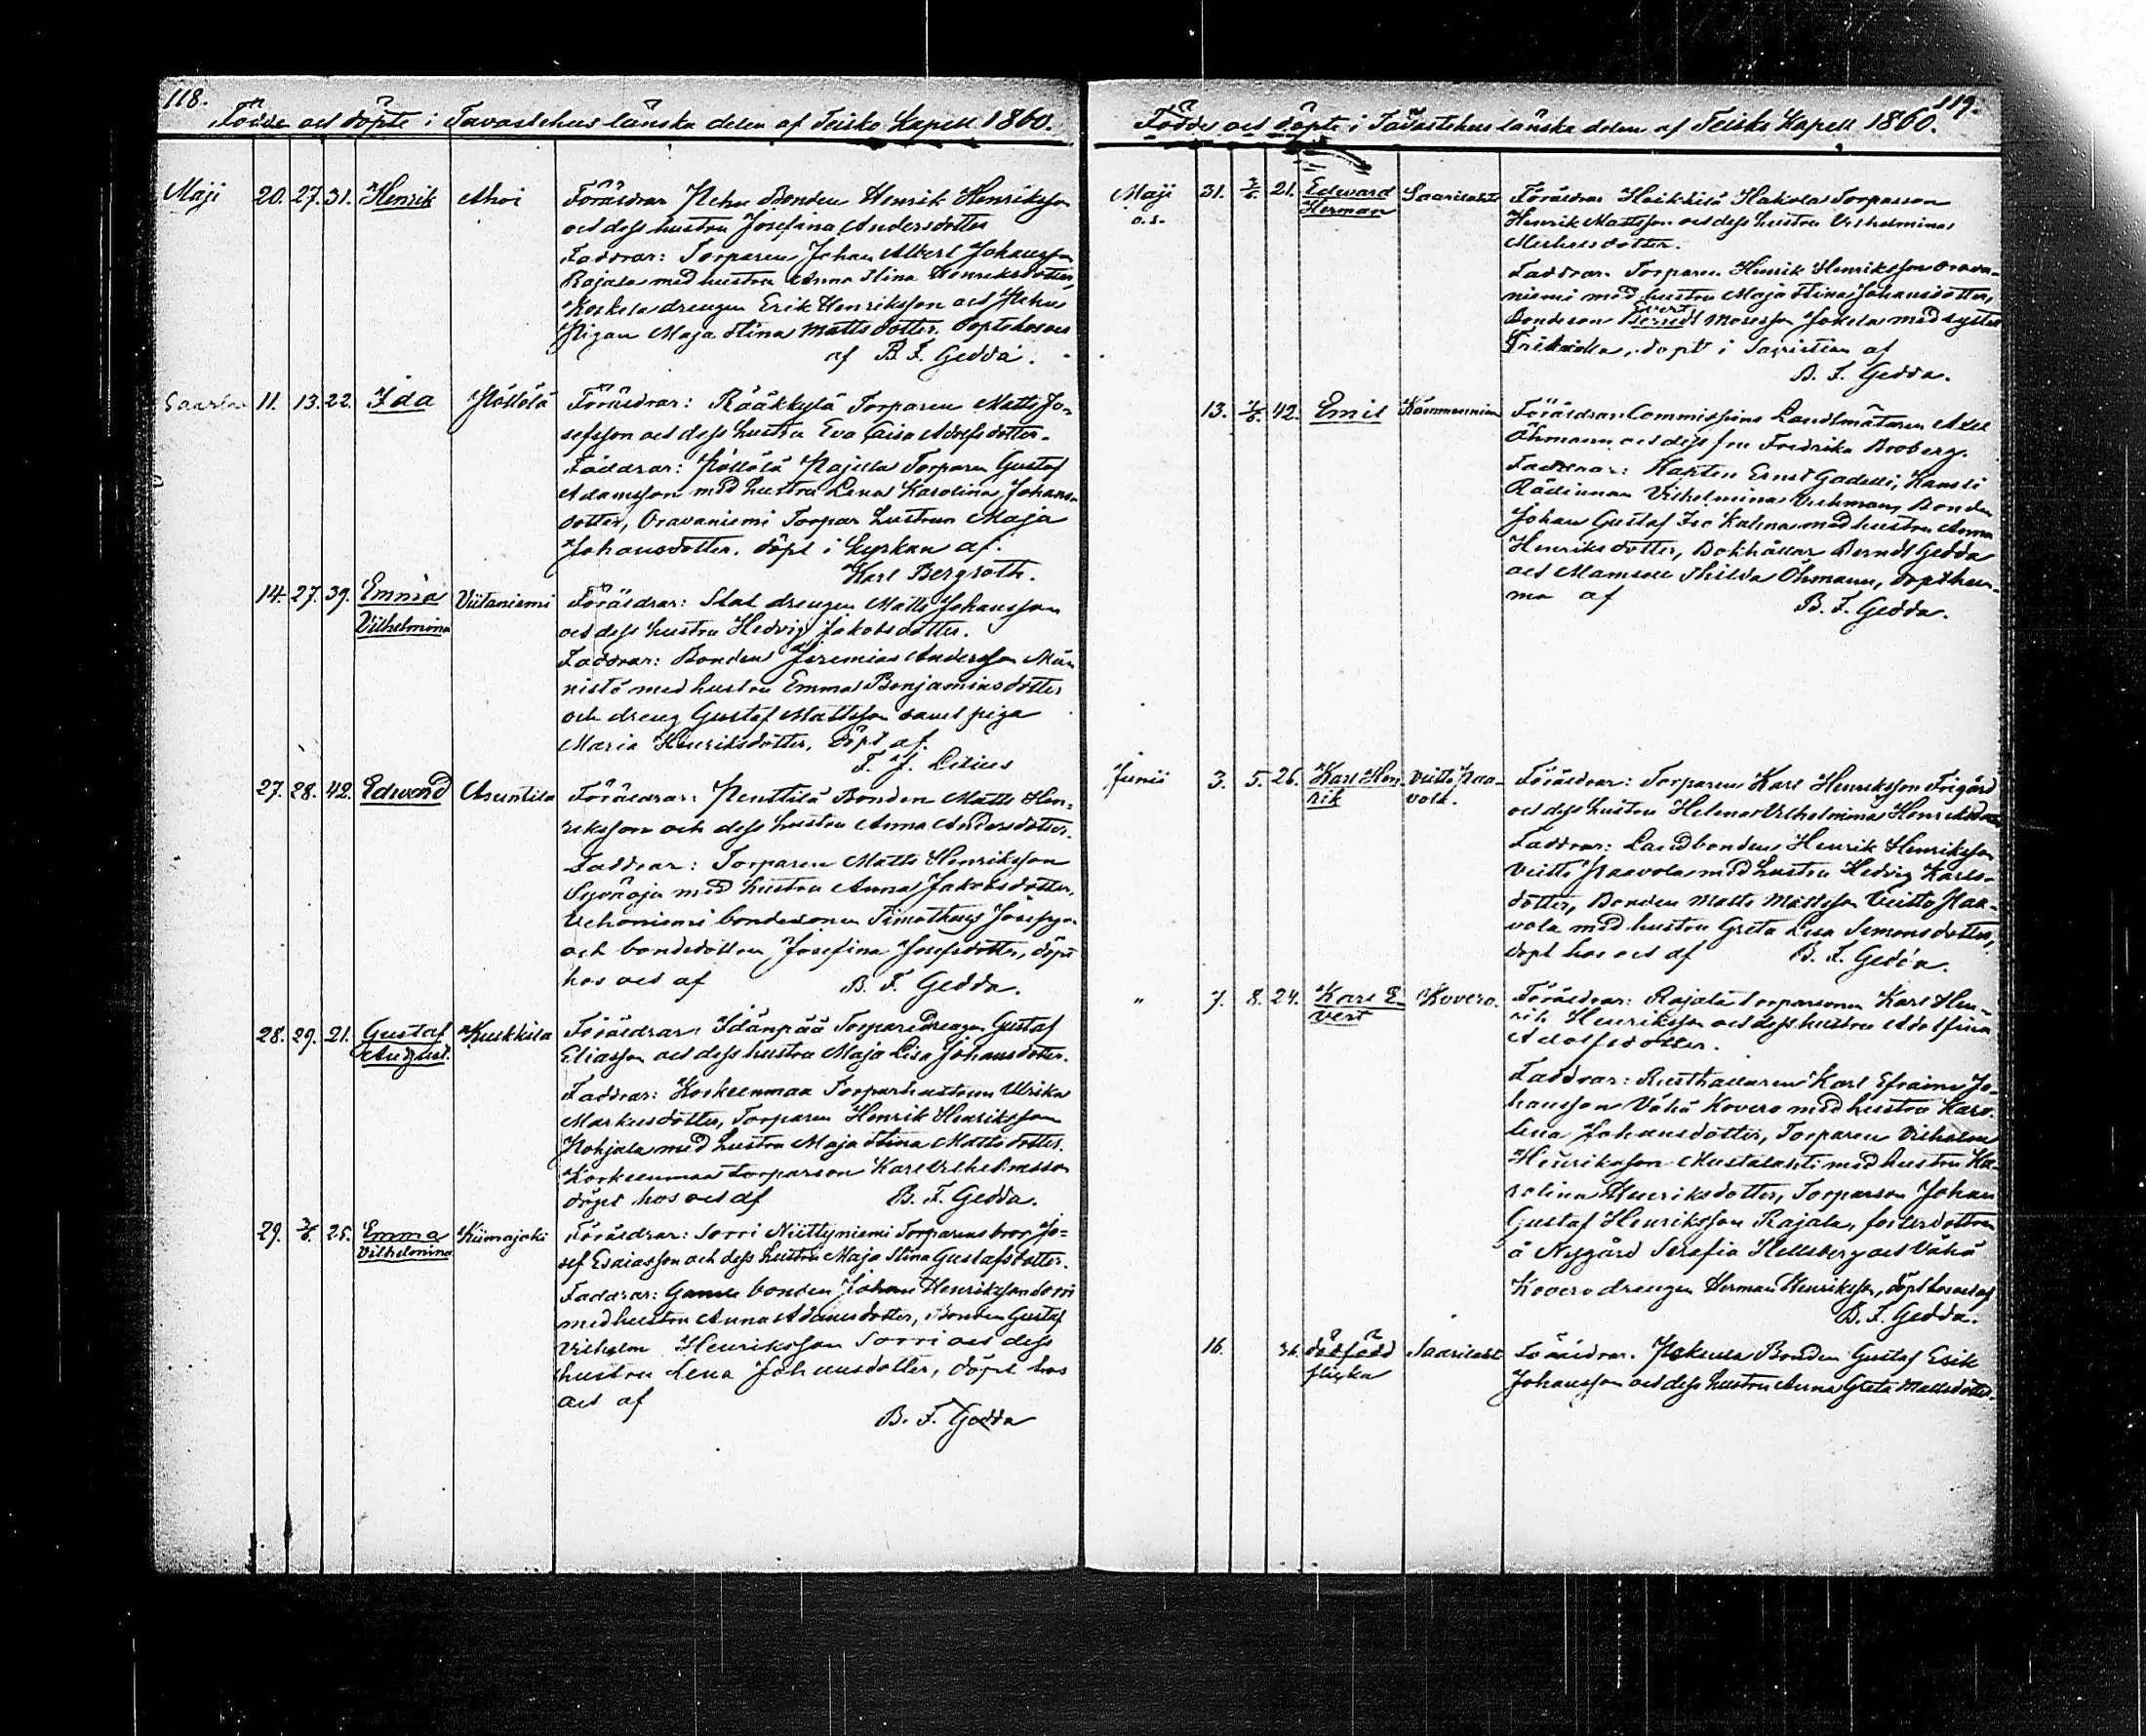 118.
Födde och döpte i Tavastehus länska delen af Teisko Kapell 1860.
Maji 20. 27. 31. Henrik Ahoi Föräldrar Bonden Henrik Henriksson
och dess hustru Josefina Andersdotter
Faddrar: Torparen Johan Albert Johansson
Rajala med hustru Anna Stina Henriksdotter,
Koskela drengen Erik Henriksson och
Pigan Maja Stina Mattsdotter. döpt hos oss
af B. F. Gedda.
11. 13. 22. Ida Pöllölä Föräldrar: Rääkkylä Torparen Matts Jo-
sefsson och dess hustru Eva Caisa Adolfsdotter.
Faddrar: Pöllölä Torparen Gustaf
Adamsson med hustru Lena Karolina Johans-
dotter, Oravaniemi Torpar hustrun Maja
Johansdotter. döpt i Kyrkan af.
Karl Bergroth.
14. 27. 39. Emma Viitaniemi Föräldrar: Stat drengen Matts Johansson
Vilhelmina och dess hustru Hedvig Jakobsdotter.
Faddrar: Bonden Jeremias Andersson Män-
nistö med hustru Emma Benjaminsdotter
och dreng Gustaf Mattsson samt piga
Maria Henriksdotter, döpt af.
F. J. Lilius
27. 28. 42. Edward Asuntila Föräldrar: Penttilä Bonden Matts Hen-
riksson och dess hustru Anna Andersdotter.
Faddrar: Torparen Matts Henriksson
Syväoja med hustru Anna Jakobsdotter,
Uchoniemi bondesonen Timotheus Josefsson
och bondedottern Josefina Josefsdotter, döpt
hos oss af B. F. Gedda.
28. 29. 21. Gustaf Kuskkila Föräldrar: Idänpää Torparedrengen Gustaf
August. Eliasson och dess hustru Maja Lisa Johansdotter.
Faddrar: Korkeenmaa Torparhustrun Ulrika
Markusdotter, Torparen Henrik Henriksson
Pohjala med hustru Maja Stina Mattsdotter.
Korkeenmaa torparson Karl Vilhelmsson
döpt hos oss af B. F. Gedda.
29. 3/6. 25. Emma Kiimajoki Föräldrar: Sorri Niittyniemi Torparens bror Jo-
Vilhelmina sef Esaiasson och dess hustru Maja Stina Gustafsdotter.
Faddrar: Gamle bonden Johan Henriksson Sorri
med hustru Anna Adamsdotter, Bonden Gustaf
Vilhelm Henriksson Sorri och dess
hustru Lena Johansdotter, döpt hos
oss af
B. F. Gedda
119.
Födde och döpte i Tavastehus länska delen af Teisko Kapell 1860.
Maji 31. 3/6. 21. Edward Saarilaht Föräldrar Heikkilä Hakola Torparson
Herman Henrik Mattsson och dess hustru Vilhelmina
Mickelsdotter.
Faddrar. Torparen Henrik Henriksson Orava-
niemi med hustru Maja Stina Johansdotter,
Bondeson Evert Mosesson Jokela med syster
Fredrika, döpt i Sacristian af
B. F. Gedda.
13. 42. Emil Kämmenniemi Föräldrar Commissions Landtmätaren Axel
Öhmann och dess fru Fredrika Broberg.
Faddrar: Kapten Ernst Gadolli, Kansli
Rådinnan Vilhelmina Uschmann, Bonden
Johan Gustaf Iso Kalma med hustru Anna
Henriksdotter, Bokhållar Berndt Gedda
och Mamsell Thilda Öhmann, döpt hem-
ma af B. F. Gedda.
Junii 3. 5. 26. Karl Hen- Veitto Paa-
rik vola. Föräldrar: Torparen Karl Henriksson Frigård
och dess hustru Helena Vilhelmina Henriksdotter
Faddrar: Landbonden Henrik Henriksson
Veitto Paavola med hustru Hedvig Karls-
dotter, Bonden Matts Mattsson Veitto Paa-
vola med hustru Greta Lisa Simonsdotter,
döpt hos oss af B. F. Gedda.
" 7. 8. 24. Karl E- Kovero. Föräldrar: Rajala torparsonen Karl Hen-
vert rik Henriksson och dess hustru Adolfina
Adolfsdotter.
Faddrar: Rusthållaren Karl Efraim Jo-
hansson Vähä Kovero med hustru Karo-
lina Johansdotter, Torparen Vilhelm
Henriksson Mustalahti med hustru Ka-
rolina Henriksdotter, Torparson Johan
Gustaf Henriksson Rajala, fosterdottren
å Nygård Serafia Hellsberg och Vähä
Kovero drengen Herman Henriksson, döpt hos oss af
B. F. Gedda.
16. 36. dödfödd Saarilaht Föräldrar. Bonden Gustaf Erik
flicka Johansson och dess hustru Anna Greta Mattsdotter.